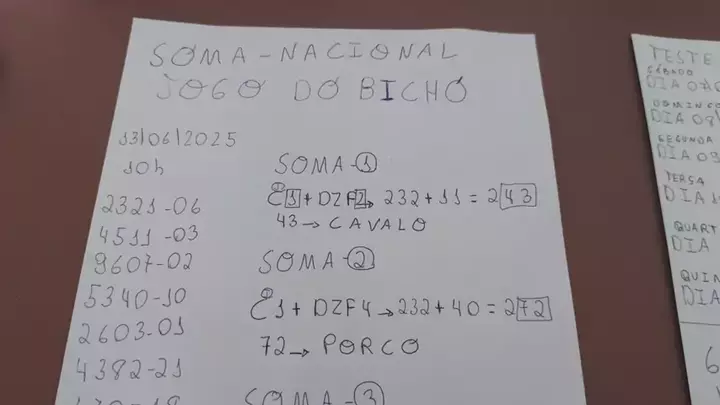 SOMA-NACIONAL
JOGO DO BICHO
13/06/2025
10h
2321-06
4511-03
9607-02
5340-10
2603-01
4382-21
SOMA-1
C1+DZF2→ 232+11=243
43→CAVALO
SOMA-2
C1+DZF4→232+40=272
72→PORCO
SOMA-3
TESTE
SÁBADO
DOMINGO
DIA 08
SEGUNDA
DIA 09
TERSA
DIA 1
QUART
DIA
QUIN
DIA
6